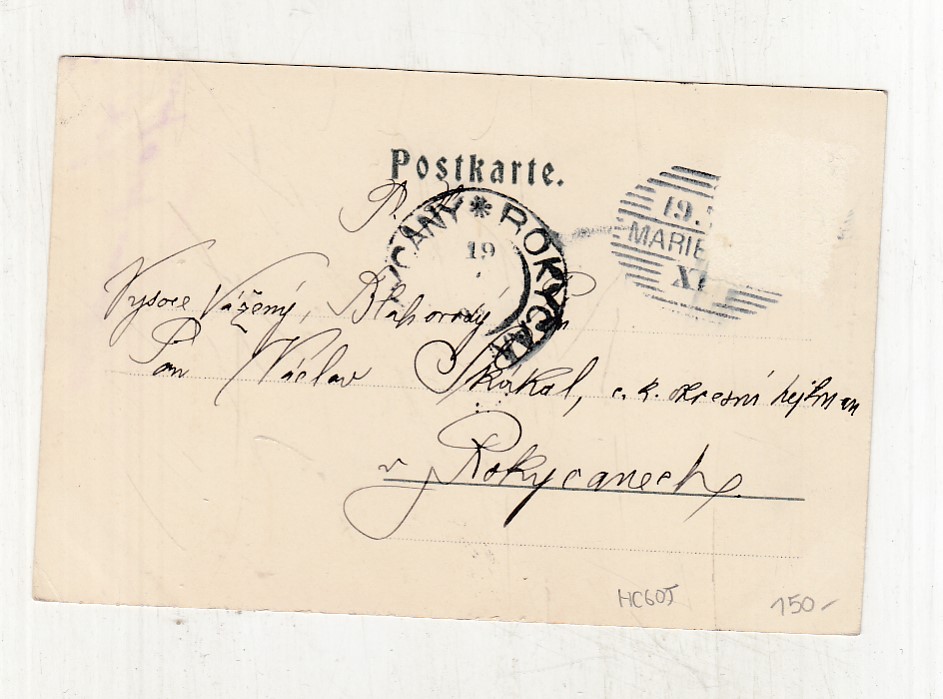 Postkarte.
P. T.
ROKYCANY * ROKYCAN
19
19.
MARIE
X
Vysoce Vážený, Blahorodý Pán
Pan Václav Skákal, c. k. okresní hejtman
v Rokycanech.
HC60J
150-